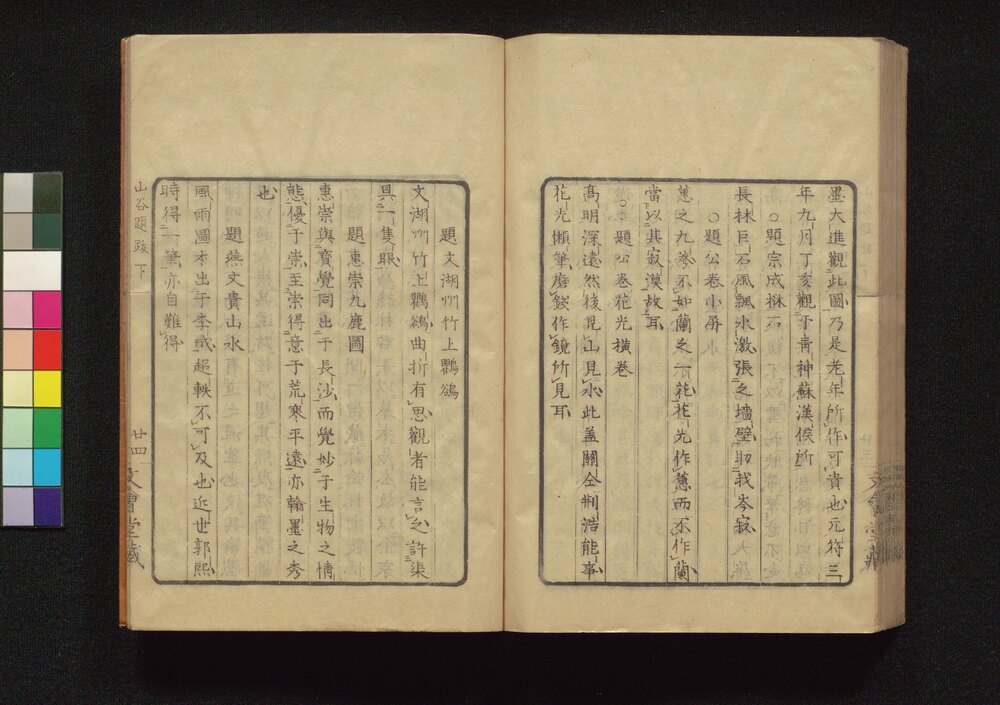 墨大進觀此圖乃是老年所作可貴也元符三
年九月丁亥觀于青神蘇漢侯所
○題宗成樹石
長林巨石風飄水激張之墻壁取我岑寂
○題公卷小屏
蕙之九莖不如蘭之一花花光作蕙而不作蘭
當以其寂漠故耳
○題公卷花光橫卷
高明深遠然後見山見水此蓋關仝荆浩能事
花光懶筆磨錢作鏡所見耳
題文湖州竹上鸜鵒
文湖州竹上鸜鵒曲折有思觀者能言之許渠
具一隻眼
題惠崇九鹿圖
惠崇與寶覺同出于長沙而覺妙于生物之情
態優于崇至崇得意于荒寒平遠亦翰墨之秀
也
題燕文貴山水
風雨圖本出于李成超軼不可及也近世郭熙
時得一筆亦自難得
山谷題跋 下
廿四 文會堂藏